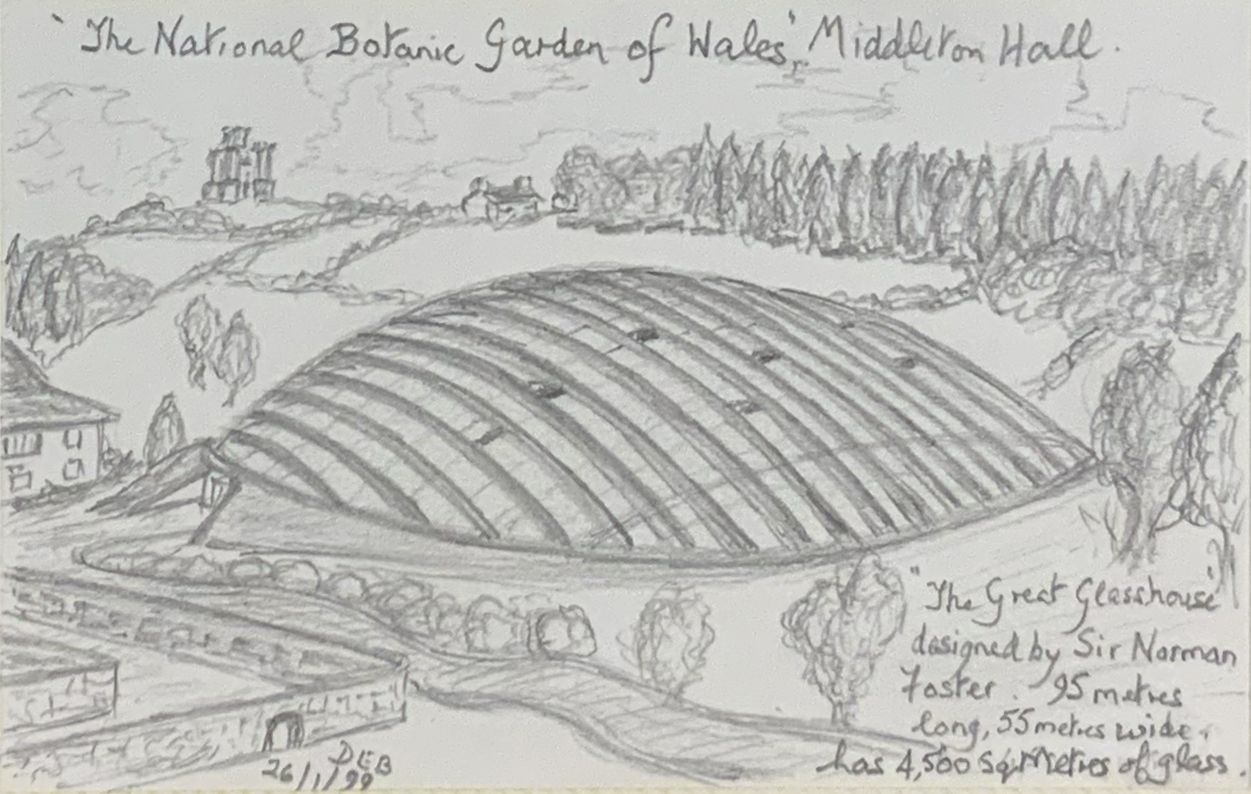 'The National Botanic Garden of Wales', Middleton Hall.
"The Great Glasshouse"
designed by Sir Norman
Foster. 95 metres
long, 55 metres wide,
has 4,500 Sq. Metres of glass.
DEB
26/1/99